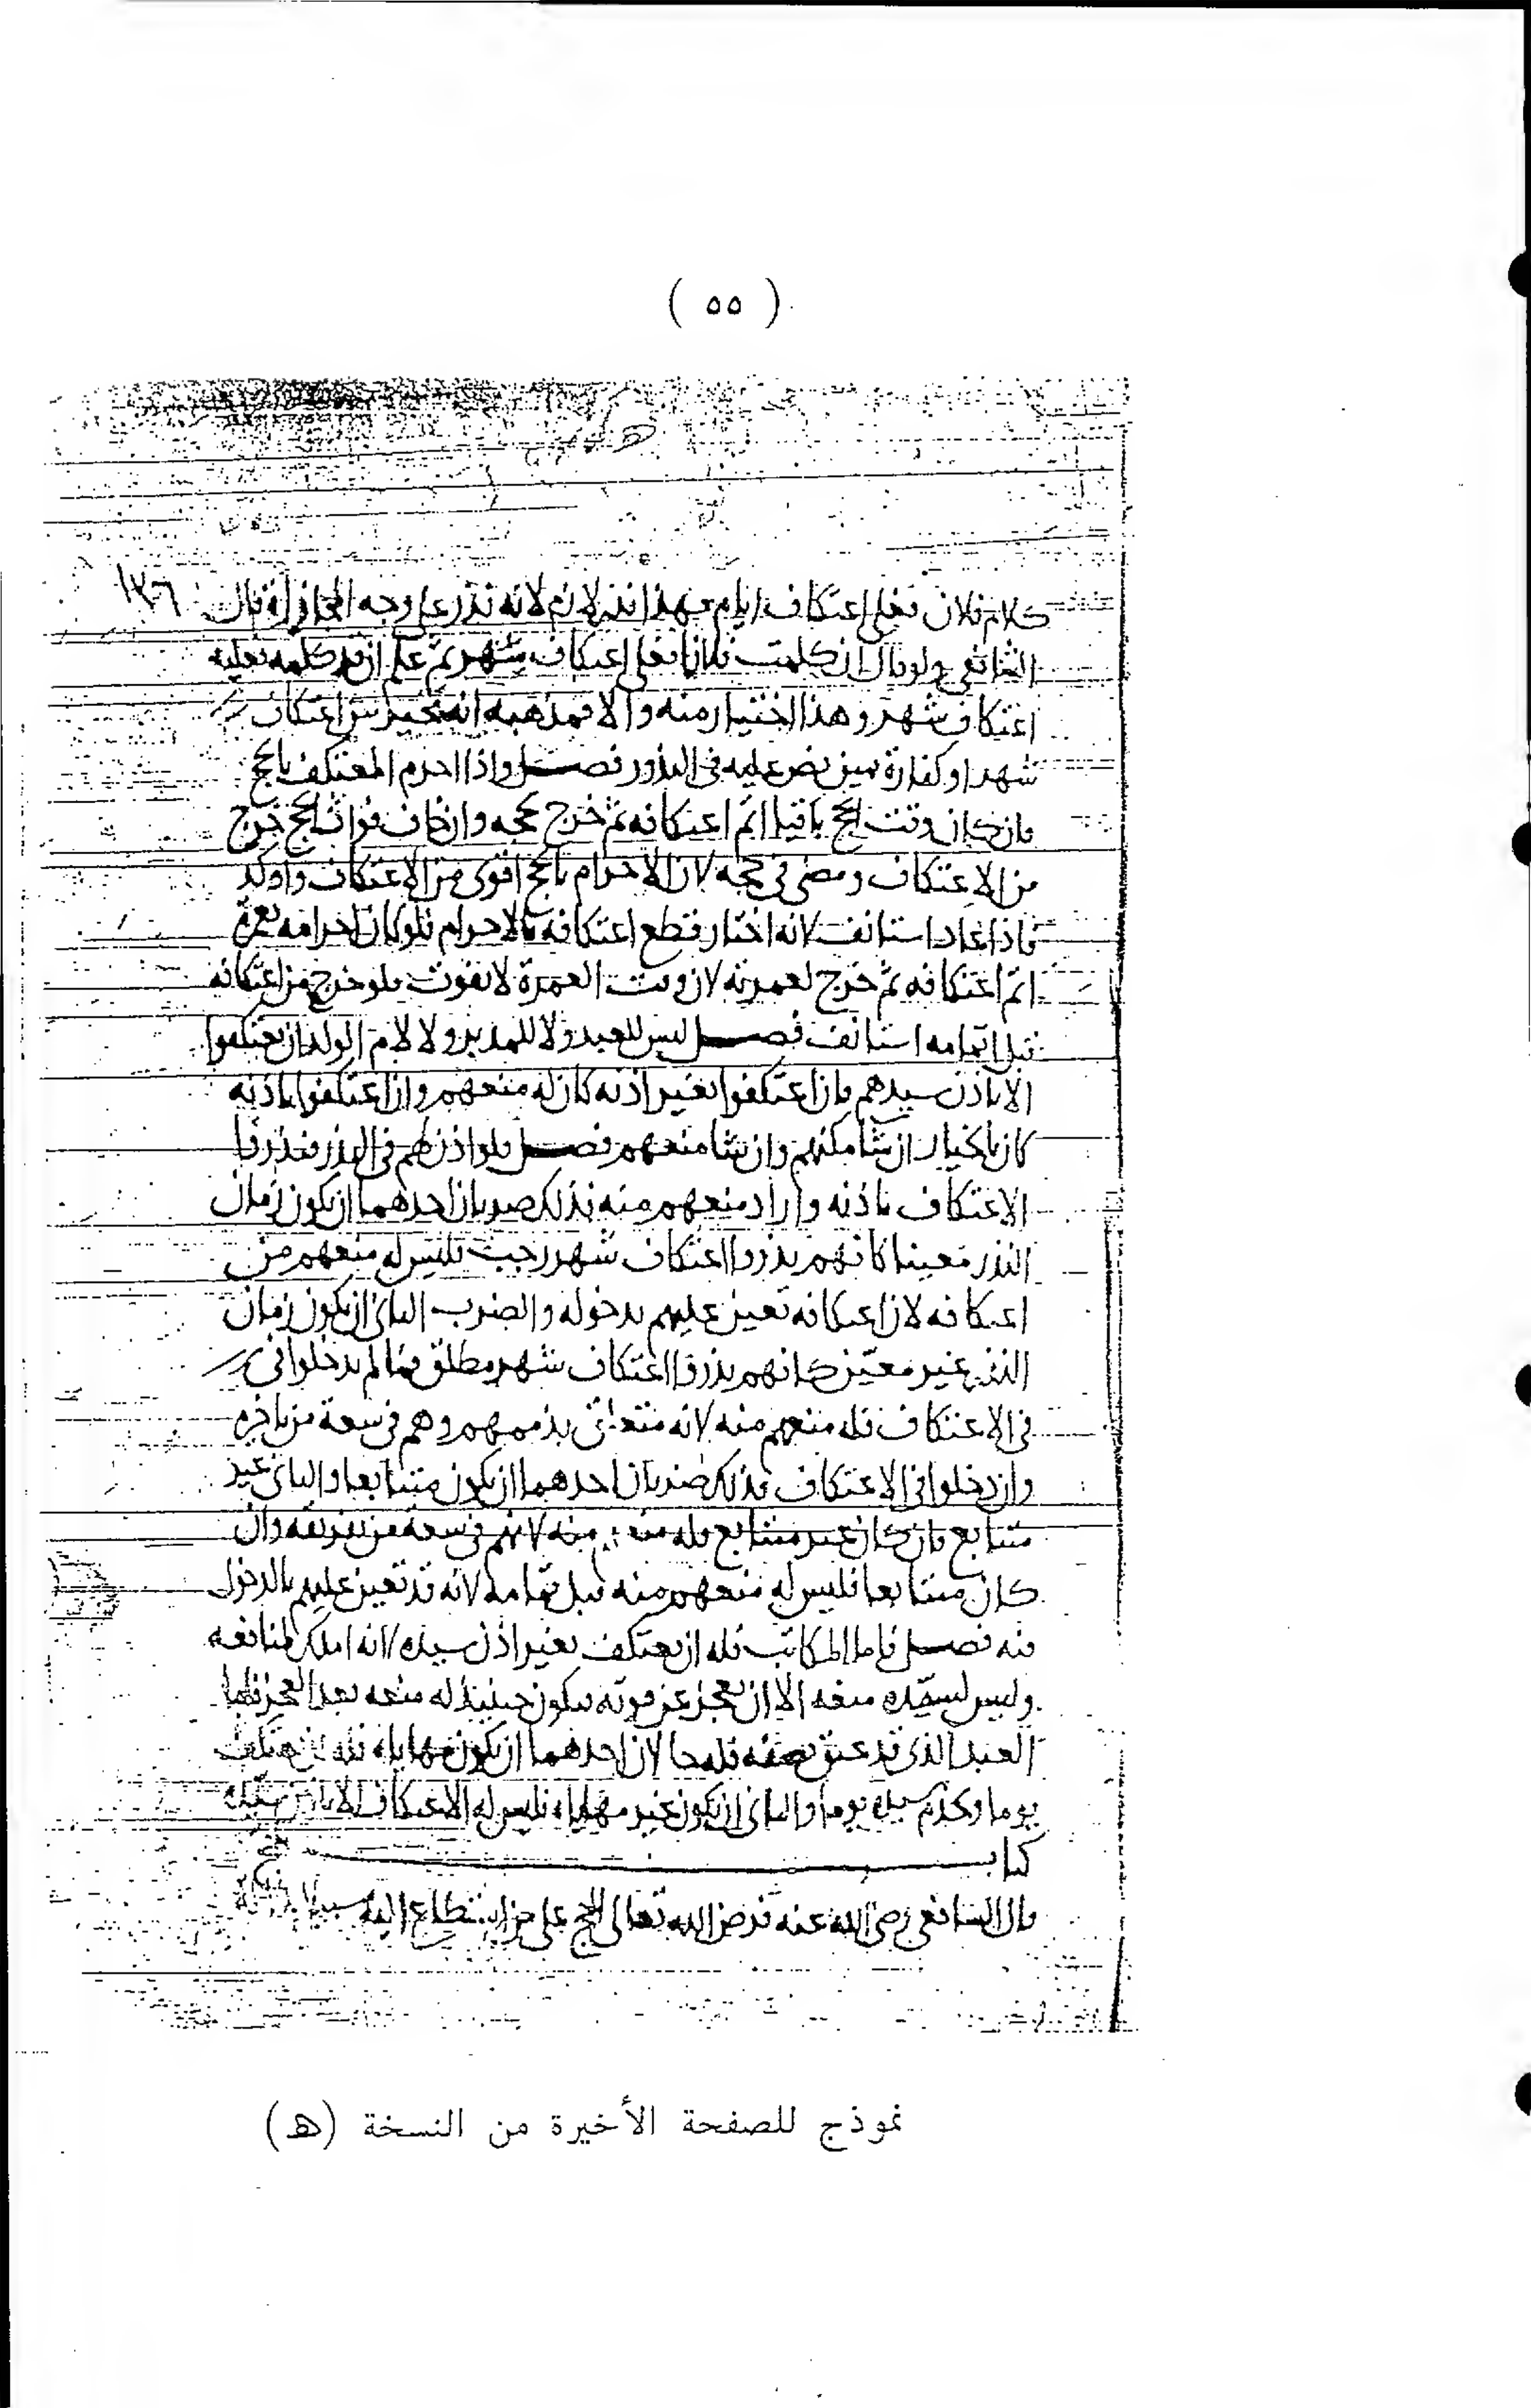 ( ٥٥ )
١٣٦
كلام فلان فعلي اعتكاف ايام فهذا نذر لازم لانه نذر على وجه المجازاة قال
الشافعي ولو قال ان كلمت فلانا فعلي اعتكاف شهر ثم علم ان قد كلمه فعليه
اعتكاف شهر وهذا اختيار منه والا فمذهبه انه مخير بين اعتكاف
شهر او كفارة يمين نص عليه في النذور فصل واذا احرم المعتكف بالحج
فان كان وقت الحج باقيا اتم اعتكافه ثم خرج لحجه وان خاف فوات الحج خرج
من الاعتكاف ومضى في حجه لان الاحرام بالحج اقوى من الاعتكاف واوكد
فاذا عاد استانف لانه اختار قطع اعتكافه بالاحرام فلو كان احرامه بعمرة
اتم اعتكافه ثم خرج لعمرته لان وقت العمرة لا يفوت فلو خرج من اعتكافه
قبل اتمامه استانف فصل ليس للعبد ولا للمدبر ولا لام الولد ان يعتكفوا
الا باذن سيدهم فان اعتكفوا بغير اذنه كان له منعهم وان اعتكفوا باذنه
كان بالخيار ان شا مكنهم وان شا منعهم فصل فلو اذن لهم في النذر فنذروا
الاعتكاف باذنه واراد منعهم منه فذلك ضربان احدهما ان يكون زمان
النذر معينا كانهم نذروا اعتكاف شهر رجب فليس له منعهم من
اعتكافه لان اعتكافه تعين عليهم بدخوله والضرب الثاني ان يكون زمان
النذر غير معين كانهم نذروا اعتكاف شهر مطلق فما لم يدخلوا في
في الاعتكاف فله منعهم منه لانه متعلق بذممهم وهم في سعة من تاخيره
وان دخلوا في الاعتكاف فذلك ضربان احدهما ان يكون متتابعا والثاني غير
متتابع فان كان غير متتابع فله منعهم منه لانهم في سعة من تفريقه وان
كان متتابعا فليس له منعهم منه قبل تمامه لانه قد تعين عليهم بالدخول
فيه فصل فاما المكاتب فله ان يعتكف بغير اذن سيده لانه املك لمنافعه
وليس لسيده منعه الا ان يعجز عن قوته فيكون حينئذ له منعه بعد العجز فاما
العبد الذي قد عتق نصفه فله حالان احدهما ان يكون مهاياه فله ان يعتكف
يوما ويخدم سيده يوما والثاني ان يكون غير مهاياه فليس له الاعتكاف الا باذن سيده
كتاب الحج
قال الشافعي رضي الله عنه فرض الله تعالى الحج على من استطاع اليه سبيلا
نموذج للصفحة الأخيرة من النسخة (هـ)